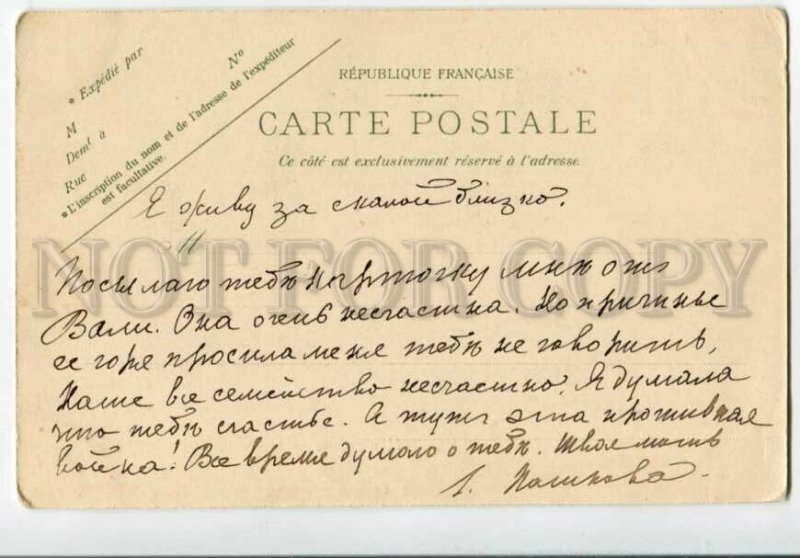 * Expédié par
N°
M
Demt à
Rue
* L'inscription du nom et de l'adresse de l'expéditeur
est facultative.
RÉPUBLIQUE FRANÇAISE
CARTE POSTALE
Ce côté est exclusivement réservé à l'adresse
Я живу за скалой близко.
NOT FOR COPY
Посылаю тебѣ карточку мнѣ отъ
Вали. Она очень несчастна. Но причины
ее горя просила меня тебѣ не говорить.
Наше все семейство несчастно. Я думала
что тебѣ счастье. А тутъ эта противная
война! Все время думаю о тебѣ. Твоя мать
Пашкова.